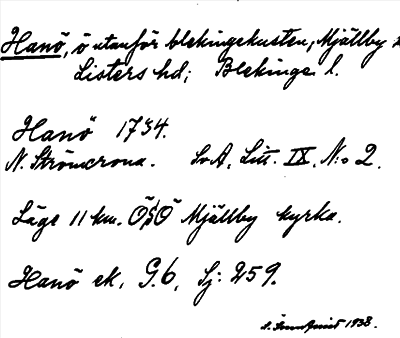 Hanö, ö utanför blekingekusten, Mjällby
Listers hd; Blekinge l.
Hanö 1734.
N. Strömcrona. SvA, Litt. IX, N:o 2.
Läge 11 km. ÖSÖ Mjällby kyrka.
Hanö ek. G.6, Sj: 259.
1938.